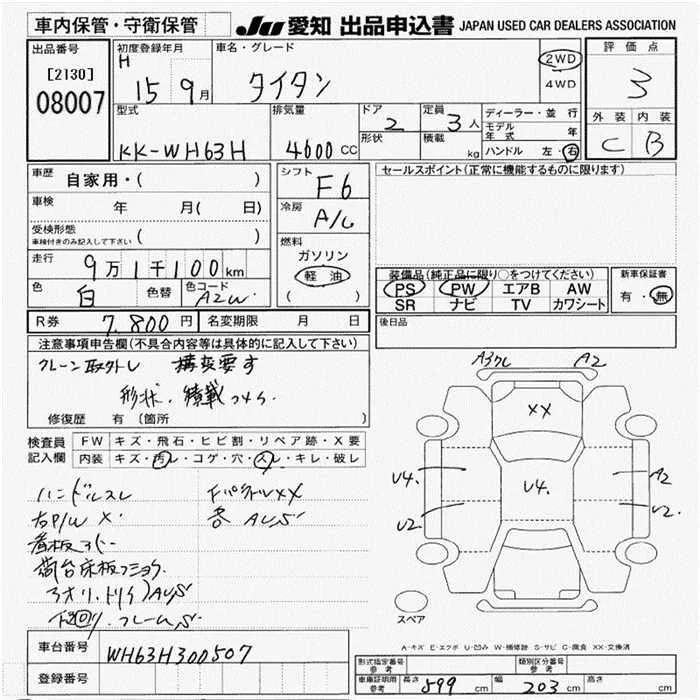 車内保管・守衛保管
JU 愛知 出品申込書 JAPAN USED CAR DEALERS ASSOCIATION
出品番号
[2130]
08007
初度登録年月
H 15 9月
車名・グレード
タイタン
2WD
4WD
評価点
3
外装 内装
C B
型式
KK-WH63H
排気量
4600 CC
ドア
2
形状
定員
3人
積載
kg
ディーラー・並行
モデル年式 年
ハンドル 左・右
車歴 自家用・( )
車検 年 月( 日)
受検形態
車検付きのみ記入して下さい ( )
走行 9万1千100km
色 白 色替 色コード A2W
シフト F6
冷房 A/C
燃料
ガソリン
軽油
( )
セールスポイント(正常に機能するものに限ります)
装備品(純正品に限り○をつけてください)
PS PW エアB AW
SR ナビ TV カワシート
新車保証書
有・無
R券 7,800円 名変期限 月 日
後日品
注意事項申告欄(不具合内容等は具体的に記入して下さい)
クレーン取外し 構変要す
形状、積載
修復歴 有 〔箇所 〕
検査員 FW キズ・飛石・ヒビ割・リペア跡・X要
記入欄 内装 キズ・汚レ・コゲ・穴・スレ・キレ・破レ
ハンドルスレ
右P/W X
荷台床板
下回り フレームS
各 AUS
XX
A3 A2
XX
U4. U4. A2
U2. U2.
スペア
A-キズ E-エクボ U-凹み W-補修跡 S-サビ C-腐食 XX-交換済
車台番号 WH63H300507
登録番号
形式指定番号 参考
類別区分番号 参考
車庫証明用 参考 長さ 599 cm 幅 203 cm 高さ cm